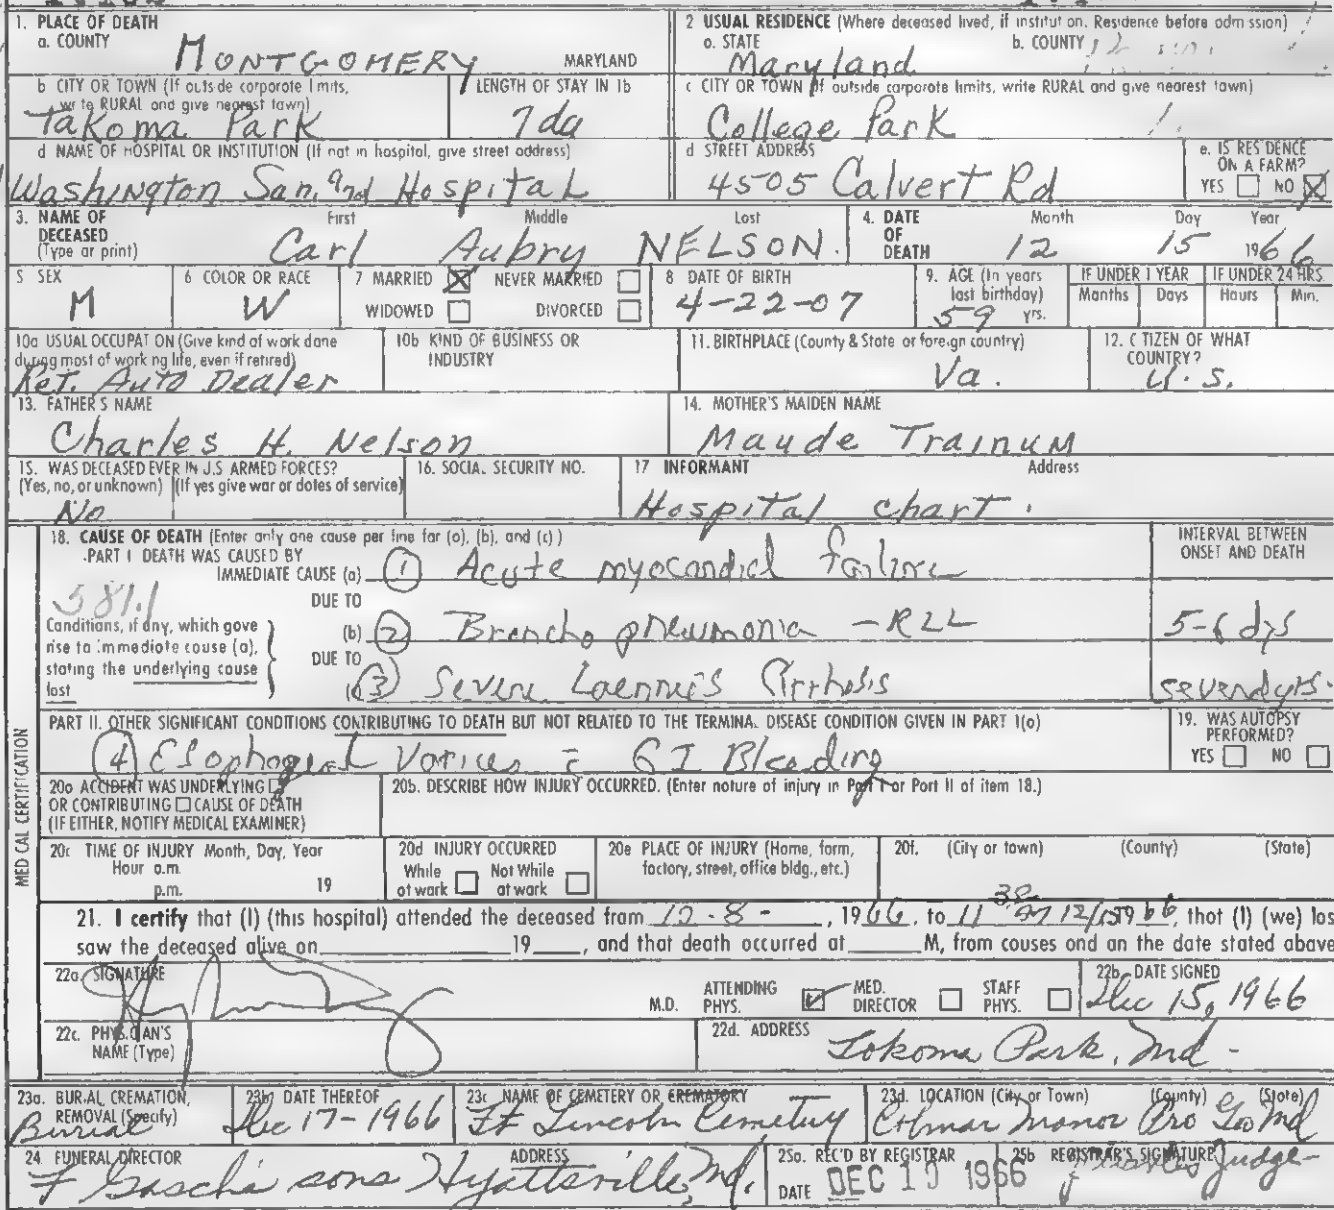 1. PLACE OF DEATH
a. COUNTY
MONTGOMERY MARYLAND
2 USUAL RESIDENCE (Where deceased lived, if institut on. Residence before adm ssion)
a. STATE b. COUNTY
Maryland
b CITY OR TOWN (If outs de corporate l mits,
wr te RURAL and give nearest town)
Takoma Park
LENGTH OF STAY IN 1b
7 da
c CITY OR TOWN (If outside corporate limits, write RURAL and give nearest town)
College Park
d NAME OF HOSPITAL OR INSTITUTION (If not in hospital, give street address)
Washington San. and Hospital
d STREET ADDRESS
4505 Calvert Rd
e. IS RES DENCE
ON A FARM?
YES NO
3. NAME OF
DECEASED
(Type or print)
First Middle Last
Carl Aubry NELSON.
4. DATE
OF
DEATH
Month Day Year
12 15 1966
5 SEX
M
6 COLOR OR RACE
W
7 MARRIED NEVER MARRIED
WIDOWED DIVORCED
8 DATE OF BIRTH
4-22-07
9. AGE (In years
last birthday)
59 yrs.
IF UNDER 1 YEAR
Months Days
IF UNDER 24 HRS.
Hours Min.
10a USUAL OCCUPAT ON (Give kind of work done
during most of work ng life, even if retired)
Ret. Auto Dealer
10b KIND OF BUSINESS OR
INDUSTRY
11. BIRTHPLACE (County & State or foreign country)
Va.
12. C TIZEN OF WHAT
COUNTRY?
U.S.
13. FATHER S NAME
Charles H. Nelson
14. MOTHER'S MAIDEN NAME
Maude Trainum
15. WAS DECEASED EVER IN U.S ARMED FORCES?
(Yes, no, or unknown) (If yes give war or dates of service)
No
16. SOCIAL SECURITY NO.
17 INFORMANT Address
Hospital chart.
18. CAUSE OF DEATH (Enter only one cause per line for (a), (b), and (c) )
PART I DEATH WAS CAUSED BY
IMMEDIATE CAUSE (a) 1 Acute myocardial failure
INTERVAL BETWEEN
ONSET AND DEATH
581.1
Conditions, if any, which gove
rise to immediate cause (a),
stating the underlying cause
last
DUE TO
(b) 2 Broncho pneumonia - RLL 5-6 dys
DUE TO
(c) 3 Severe Laennec's Cirrhosis several yrs.
PART II. OTHER SIGNIFICANT CONDITIONS CONTRIBUTING TO DEATH BUT NOT RELATED TO THE TERMINAL DISEASE CONDITION GIVEN IN PART I(a)
4 Esophageal Varices c̄ GI Bleeding
19. WAS AUTOPSY
PERFORMED?
YES NO
MEDICAL CERTIFICATION
20a ACCIDENT WAS UNDERLYING
OR CONTRIBUTING CAUSE OF DEATH
(IF EITHER, NOTIFY MEDICAL EXAMINER)
20b. DESCRIBE HOW INJURY OCCURRED. (Enter nature of injury in Part I or Part II of item 18.)
20c TIME OF INJURY Month, Day, Year
Hour a.m.
p.m. 19
20d INJURY OCCURRED
While Not While
at work at work
20e PLACE OF INJURY (Home, farm,
factory, street, office bldg., etc.)
20f. (City or town) (County) (State)
21. I certify that (I) (this hospital) attended the deceased from 12-8-, 1966, to 12/15 1966, that (I) (we) las
saw the deceased alive on 19 , and that death occurred at M, from causes and on the date stated above
22a SIGNATURE
M.D. ATTENDING
PHYS.
MED.
DIRECTOR
STAFF
PHYS.
22b. DATE SIGNED
Dec 15, 1966
22c. PHYSICIAN'S
NAME (Type)
22d. ADDRESS
Takoma Park, Md -
23a. BURIAL, CREMATION,
REMOVAL (Specify)
Burial
23b. DATE THEREOF
Dec 17-1966
23c NAME OF CEMETERY OR CREMATORY
Ft Lincoln Cemetery
23d. LOCATION (City or Town) (County) (State)
Colmar Manor Pro Geo Md
24 FUNERAL DIRECTOR ADDRESS
F Gasch's sons Hyattsville, Md.
25a. REC'D BY REGISTRAR
DATE DEC 19 1966
25b REGISTRAR'S SIGNATURE
Charles Judge